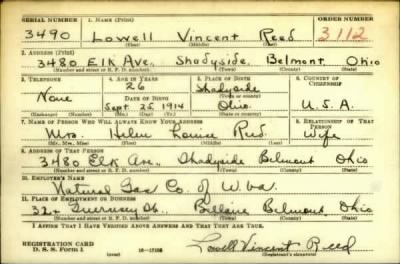 SERIAL NUMBER 1. NAME (Print) ORDER NUMBER
3490 Lowell Vincent Reed 3112
(First) (Middle) (Last)
2. ADDRESS (Print)
3480 Elk Ave., Shadyside, Belmont Ohio
(Number and street or R. F. D. number) (Town) (County) (State)
3. TELEPHONE 4. AGE IN YEARS 5. PLACE OF BIRTH 6. COUNTRY OF CITIZENSHIP
26 Shadyside
None DATE OF BIRTH (Town or county)
Sept. 25, 1914 Ohio. U.S.A.
(Exchange) (Number) (Mo.) (Day) (Yr.) (State or country)
7. NAME OF PERSON WHO WILL ALWAYS KNOW YOUR ADDRESS 8. RELATIONSHIP OF THAT PERSON
Mrs. Helen Louise Reed Wife
(Mr., Mrs., Miss) (First) (Middle) (Last)
9. ADDRESS OF THAT PERSON
3480 Elk Ave., Shadyside Belmont Ohio
(Number and street or R. F. D. number) (Town) (County) (State)
10. EMPLOYER'S NAME
Natural Gas Co. of W. Va.
11. PLACE OF EMPLOYMENT OR BUSINESS
Guernsey St., Bellaire Belmont Ohio
(Number and street or R. F. D. number) (Town) (County) (State)
I AFFIRM THAT I HAVE VERIFIED ABOVE ANSWERS AND THAT THEY ARE TRUE.
REGISTRATION CARD
D. S. S. Form 1 Lowell Vincent Reed
(over) (Registrant's signature)